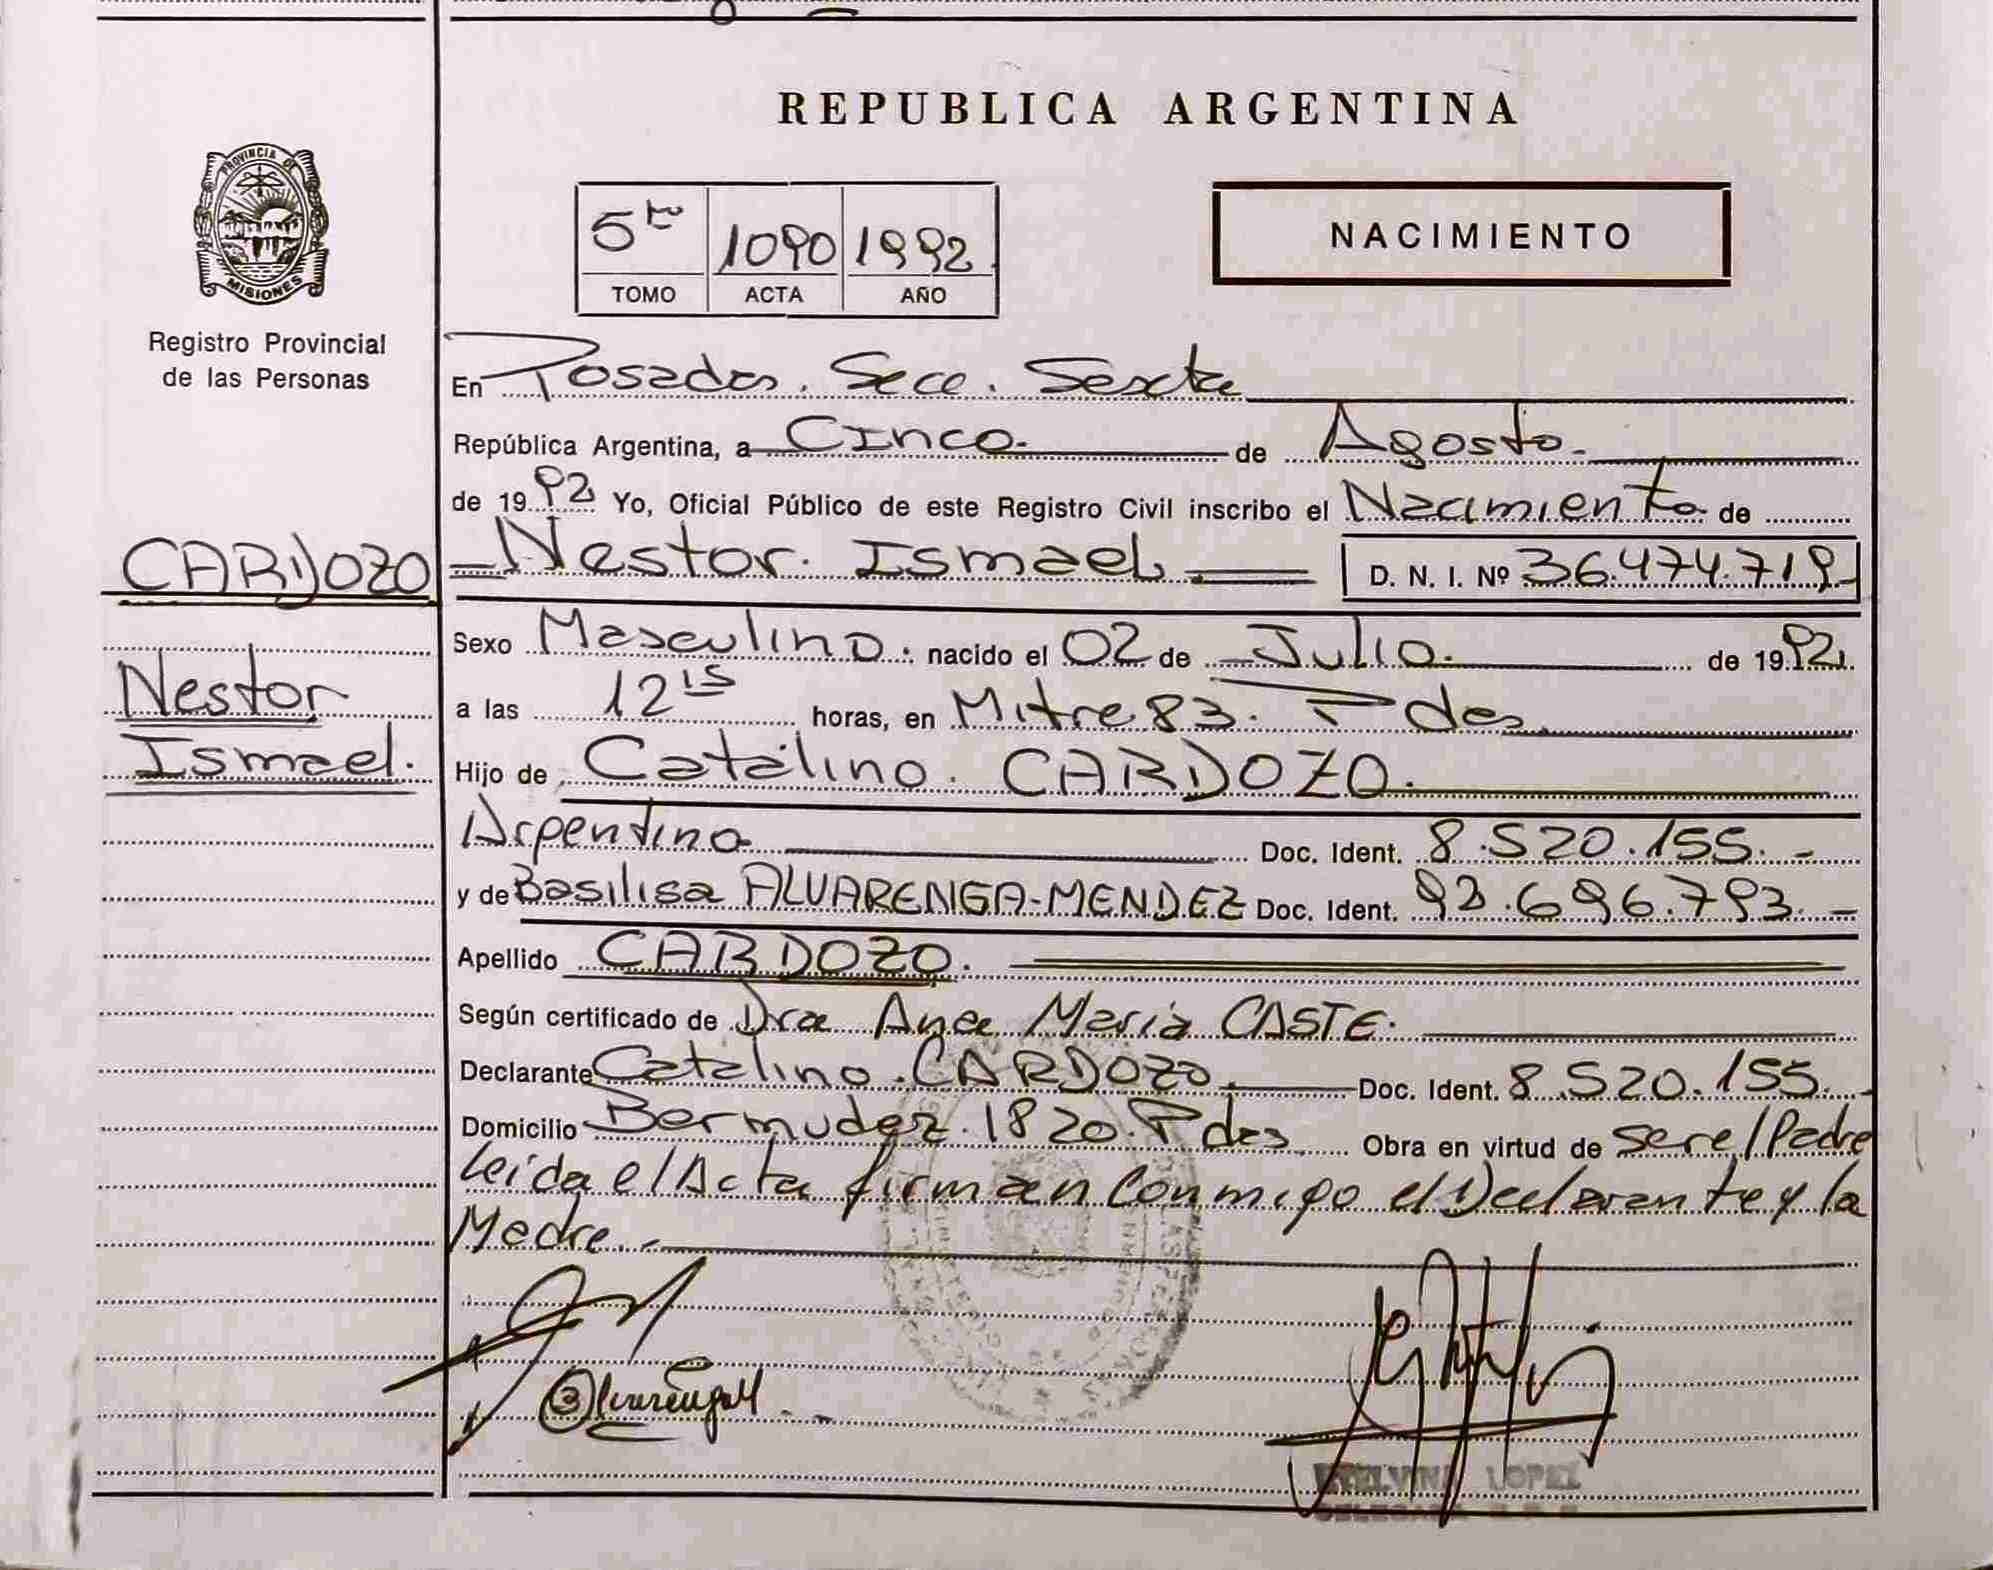 REPUBLICA ARGENTINA
PROVINCIA DE
MISIONES
Registro Provincial
de las Personas
5to 1090 1992
TOMO ACTA AÑO
NACIMIENTO
En Posadas. Secc. Sexta
República Argentina, a Cinco. de Agosto.
de 1992 Yo, Oficial Público de este Registro Civil inscribo el Nacimiento de
CARDOZO
Nestor Ismael.
Nestor. Ismael D. N. I. Nº 36.474.719
Sexo Masculino. nacido el 02 de Julio. de 1992.
a las 12 15 horas, en Mitre 83. Pdas.
Hijo de Catalino. CARDOZO.
Argentino Doc. Ident. 8.520.155.-
y de Basilisa ALVARENGA-MENDEZ Doc. Ident. 93.696.793.-
Apellido CARDOZO.
Según certificado de Dra Ana Maria CASTE.
Declarante Catalino. CARDOZO. Doc. Ident. 8.520.155.
Domicilio Bermudez. 1820. Pdas. Obra en virtud de ser el Padre
leida el Acta firman conmigo el Declarante y la
Madre.-
ETELVINA LOPEZ